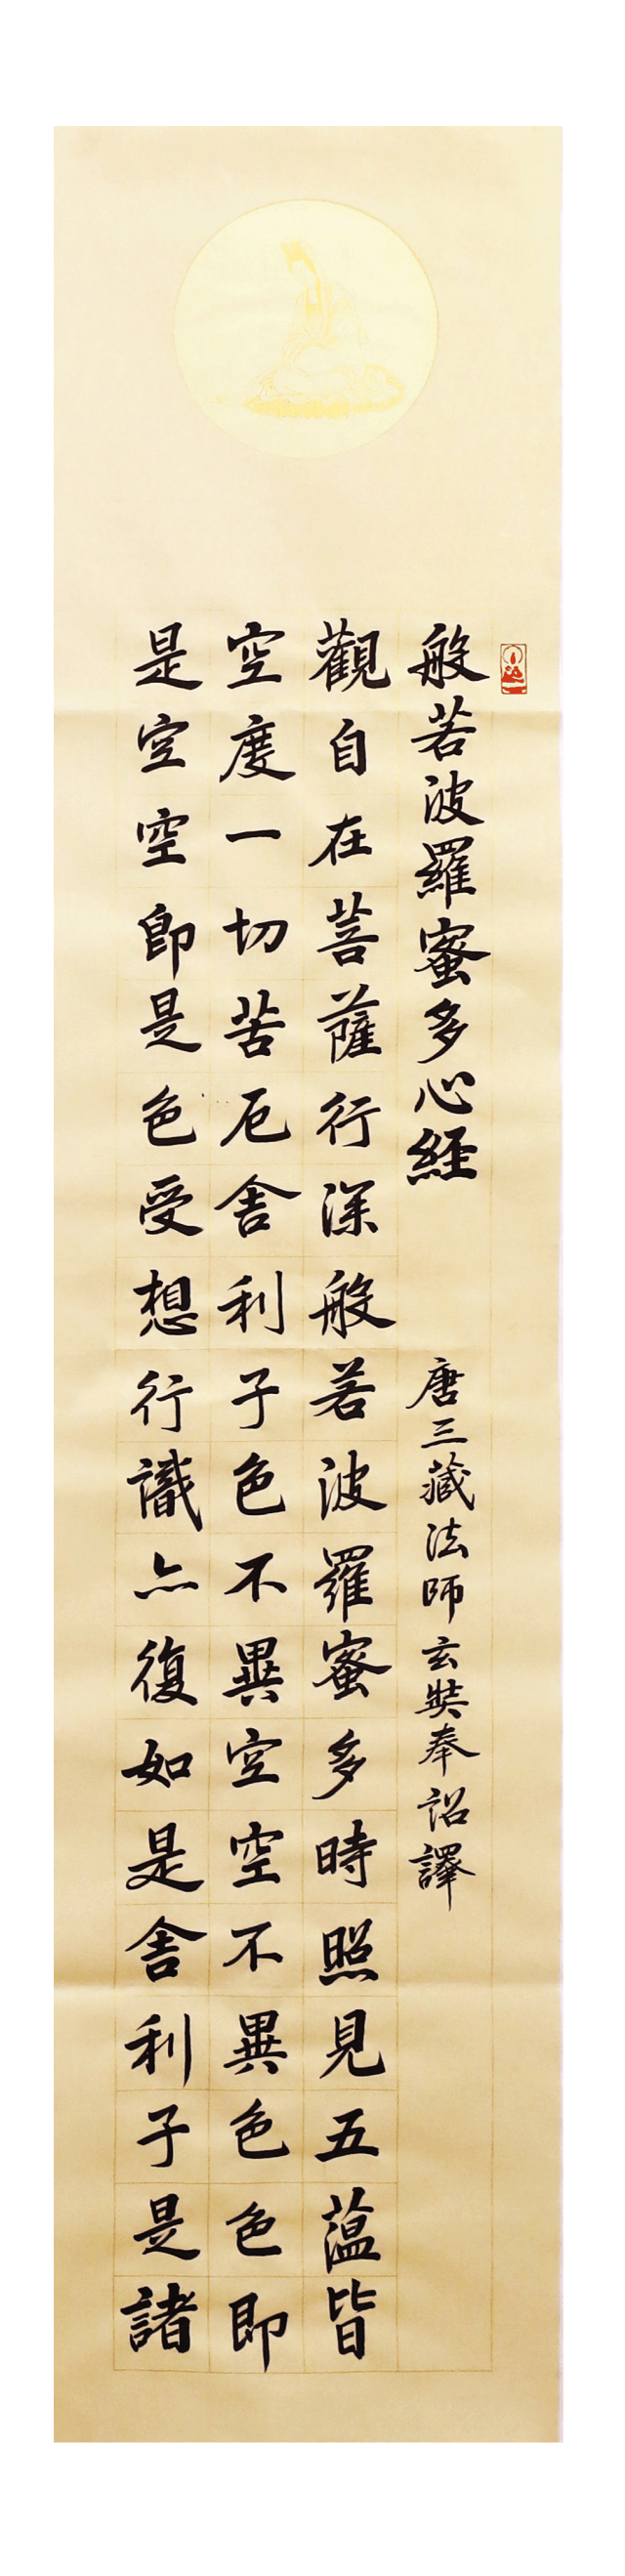 般若波羅蜜多心経 唐三藏法師玄奘奉詔譯
觀自在菩薩行深般若波羅蜜多時照見五蕰皆
空度一切苦厄舍利子色不異空空不異色色即
是空空即是色受想行識亦復如是舍利子是諸